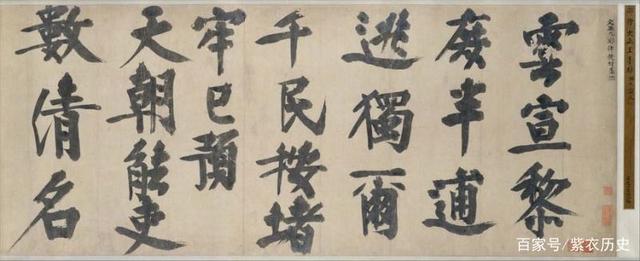 雲宣黎
庶半逋
逃獨爾
千民按堵
牢已預
天朝能吏
數清名
百家号/紫衣历史